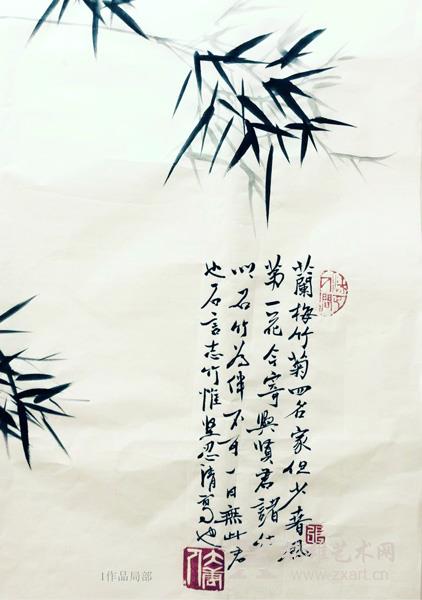 蘭梅竹菊四名家但少春風
第一花今寄興賢君諸
以石竹為伴不可一日無此君
也石言志竹惟堅忍清高也
張
1作品局部
艺术网
www.zxart.cn